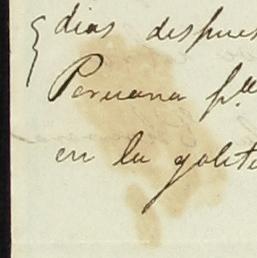 dias despues
Peruana p.ª
en la goleta